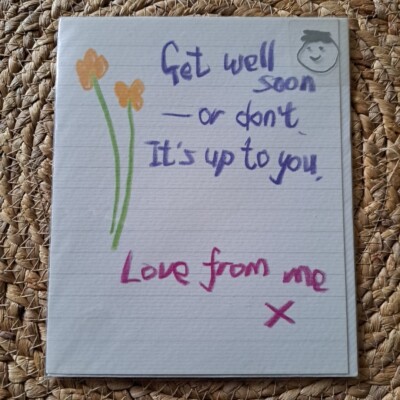 Get well
soon
— or don't.
It's up to you.
Love from me
X